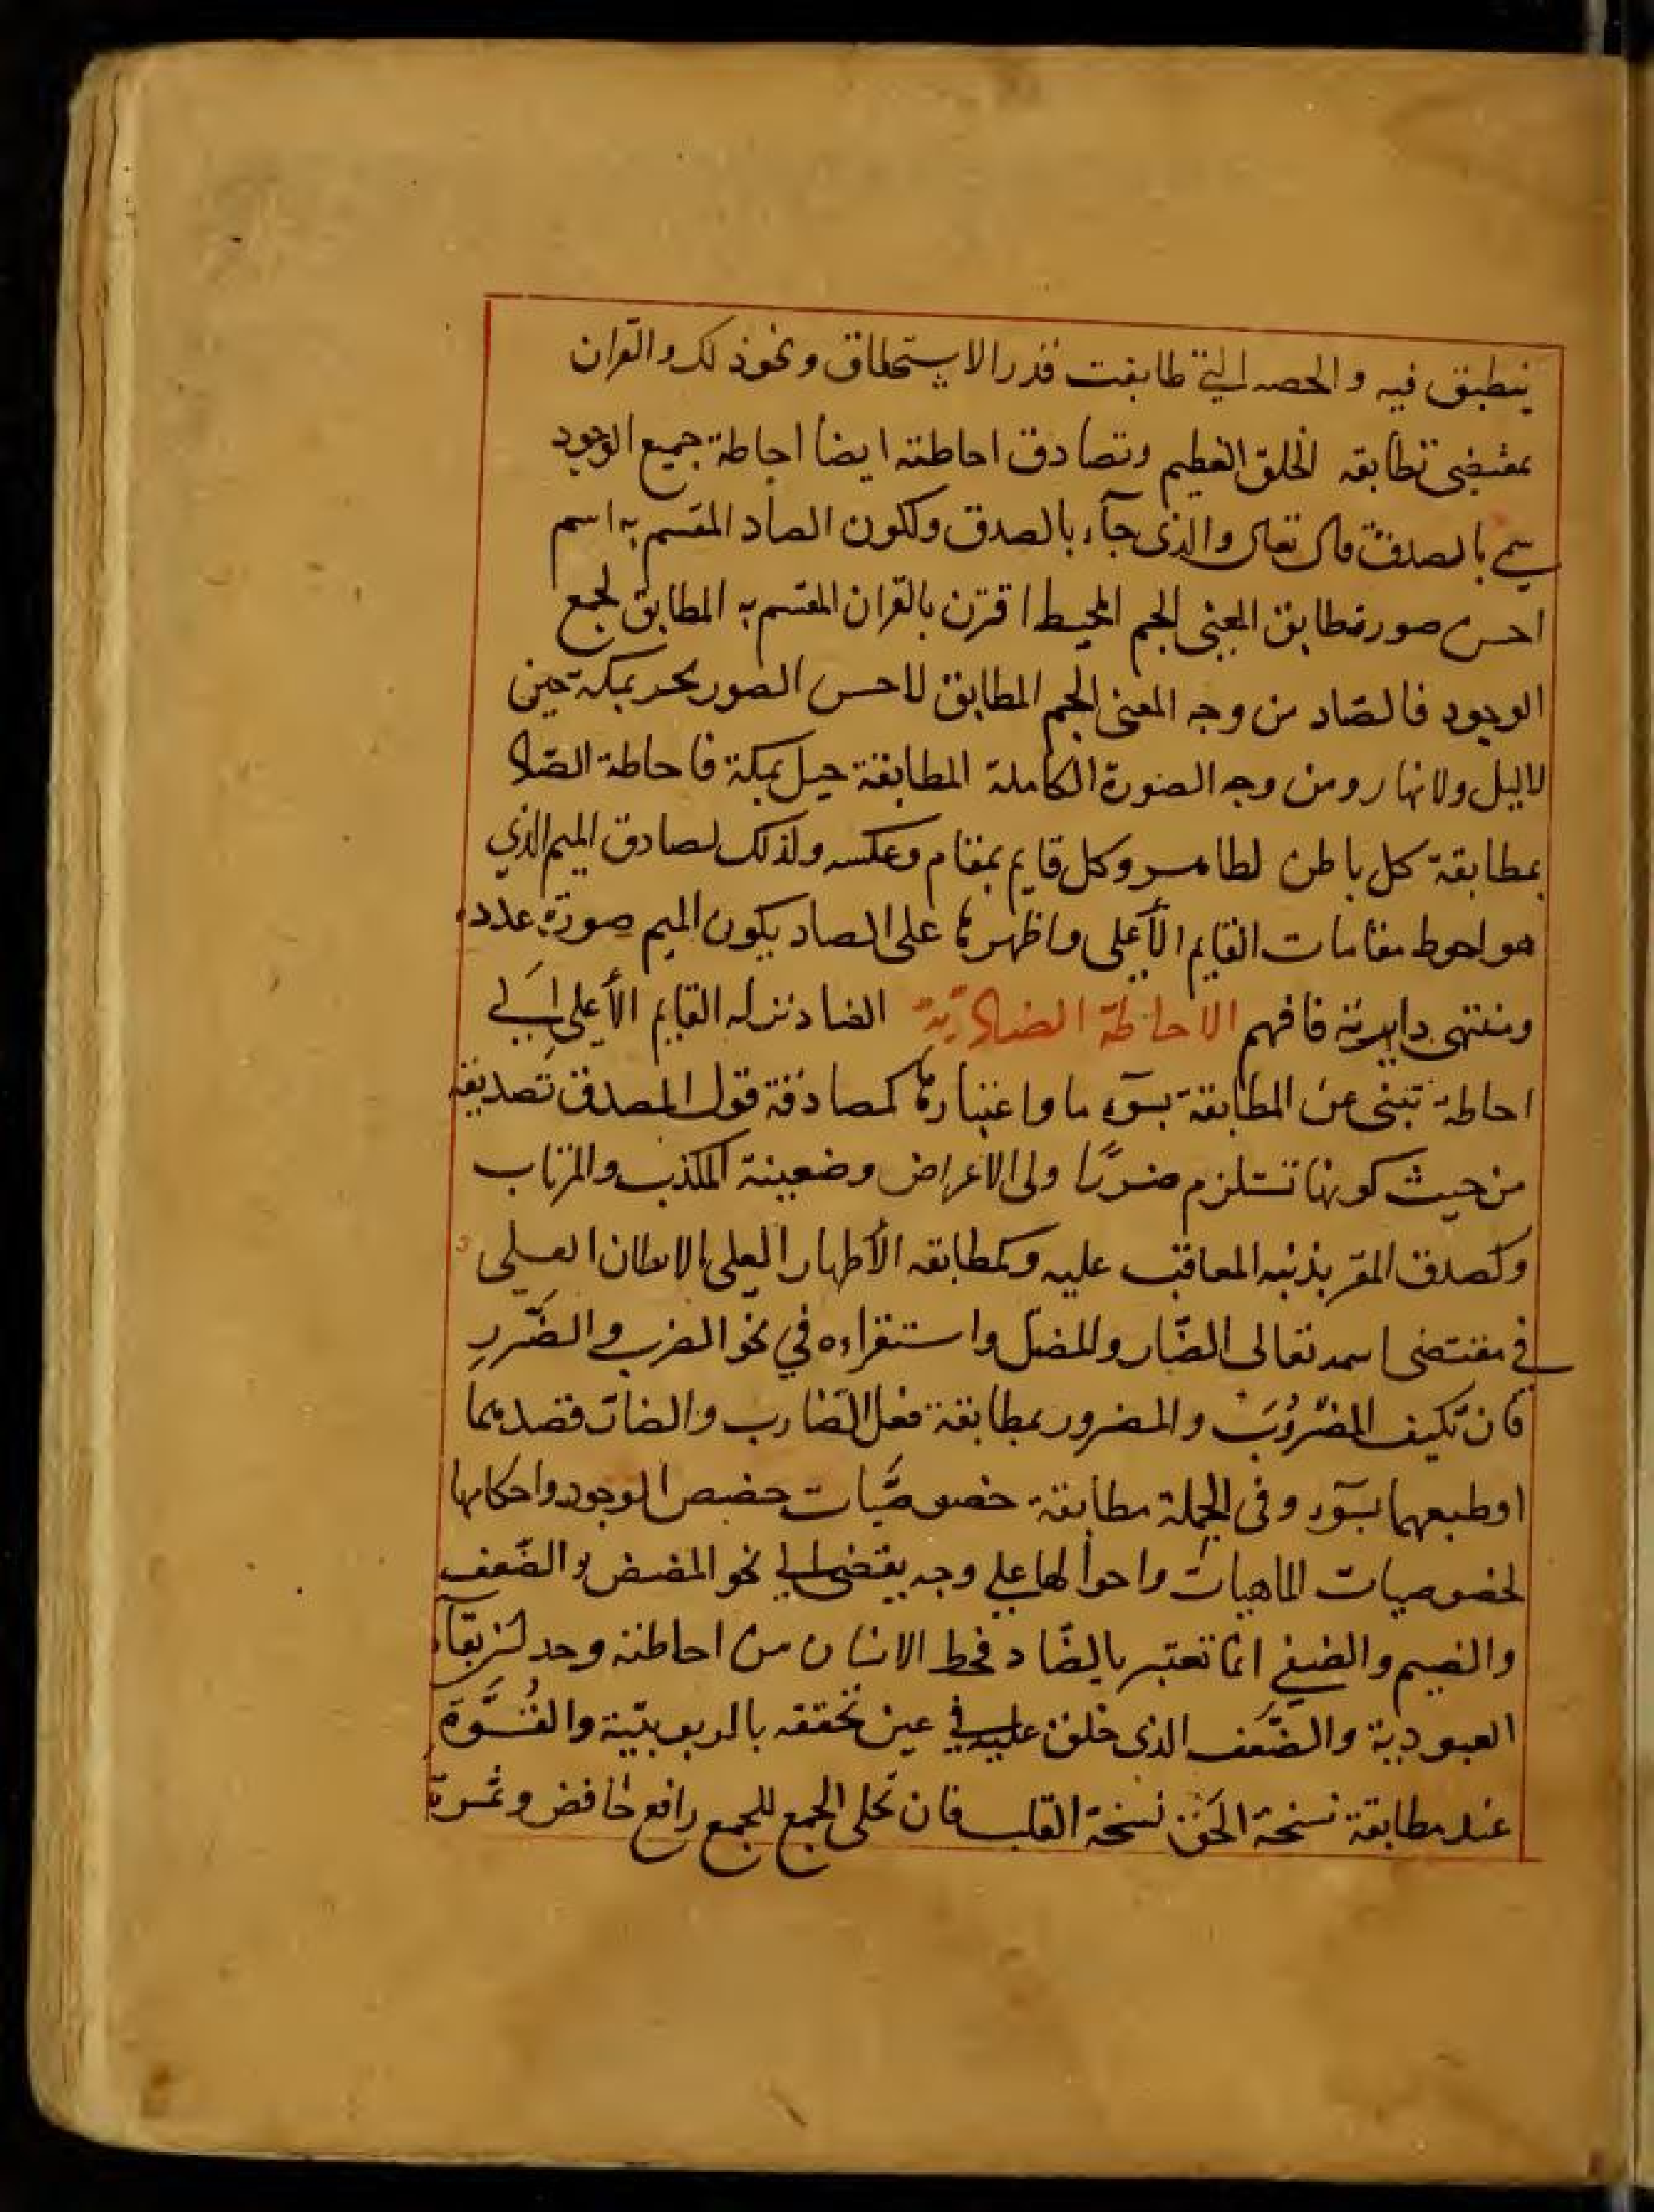 ينطبق فيه والحصه التي طابقت قدر الاستحقاق ونحو ذلك والقران
بمقتضى تطابقه الخلق العظيم وتصادق احاطته ايضا احاطة جميع الوجود
سمي بالصدق قال تعالى والذي جآء بالصدق ولكون الصاد المقسم به اسم
احسن صورة تطابق المعنى الجم المحيط اقترن بالقران المقسم به المطابق لجمع
الوجود فالصاد من وجه المعنى الجم المطابق لاحسن الصور بحر بمكة حين
لاليل ولانهار ومن وجه الصورة الكاملة المطابقة جبل بمكة فاحاطة الصاد
بمطابقة كل باطن لظاهر وكل قايم بمقام وعكسه ولذلك تصادق الميم الذي
هو احوط مقامات القايم الأعلى واظهرها على الصاد يكون الميم صورة عدده
ومنتهى دايرته فافهم الاحاطة الضادية الضاد تنزله القايم الأعلى الى
احاطة تنبي عن المطابقة بسوء ما واعتبارها كمصادفة قول المصدق تصديقه
من حيث كونها تستلزم ضررا ولى الاعراض وضعينة المكذب والمرتاب
وكصدق المقر بذنبه المعاقب عليه وكمطابقه الأظهار العلي الابطان العلي
في مقتضى اسمه تعالى الضار والمضل واستقراءه في نحو الضرب والضرر
فان تكيف المضروب والمضرور بمطابقة فعل الضارب والضار قصدهما
اوطبعهما بسوء وفي الجملة مطابقة خصوصيات حصص الوجود واحكامها
لخصوصيات الماهيات واحوالها على وجه يقتضى الى نحو المضض والضعف
والضيم والضيق انما تعتبر بالضاد فحط الانسان من احاطته وحد لزبقاء
العبودية والضعف الذي خلق عليه في عين تحققه بالربوبية والقوة
عند مطابقة نسخة الحق نسخة القلب فان تجلى الجمع للجمع رافع خافض وثمرة